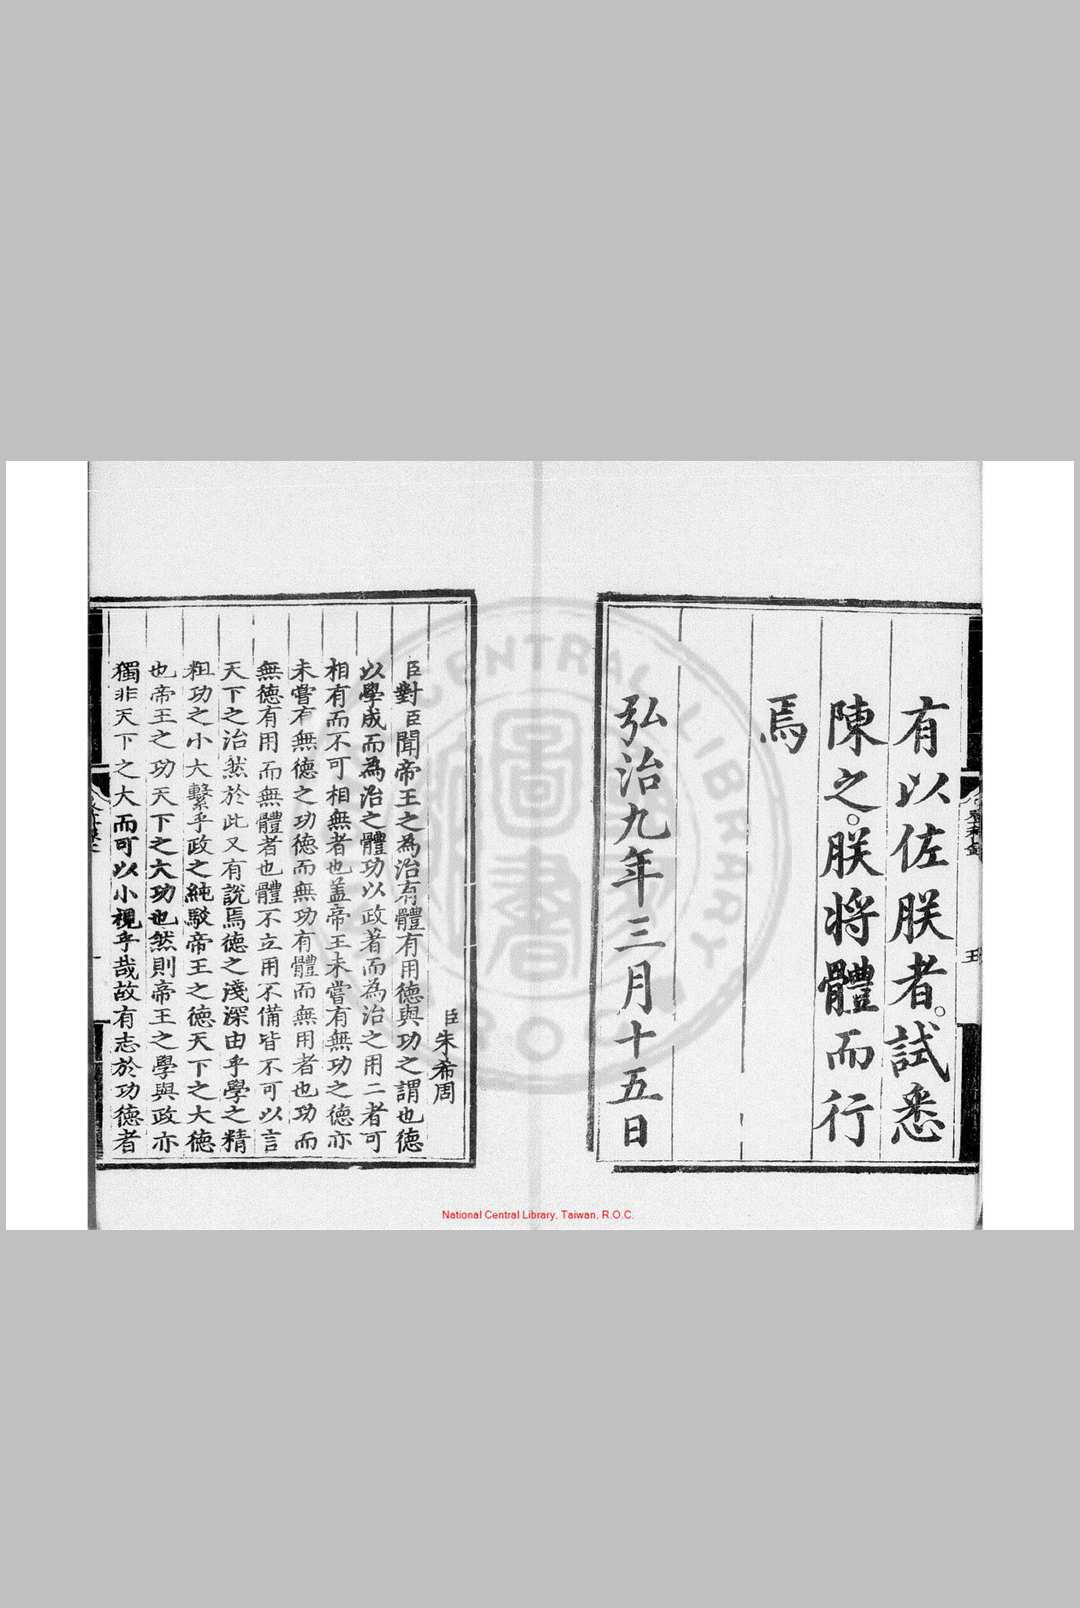 有以佐朕者。試悉
陳之。朕将體而行
焉
弘治九年三月十五日
臣朱希周
臣對臣聞帝王之為治有體有用德與功之謂也德
以學成而為治之體功以政著而為治之用二者可
相有而不可相無者也盖帝王未嘗有無功之德亦
未嘗有無德之功德而無功有體而無用者也功而
無德有用而無體者也體不立用不備皆不可以言
天下之治然於此又有說焉德之淺深由乎學之精
粗功之小大繫乎政之純駁帝王之德天下之大德
也帝王之功天下之大功也然則帝王之學與政亦
獨非天下之大而可以小視乎哉故有志於功德者
National Central Library, Taiwan, R.O.C.
CENTRAL LIBRARY
R.O.C
圖書